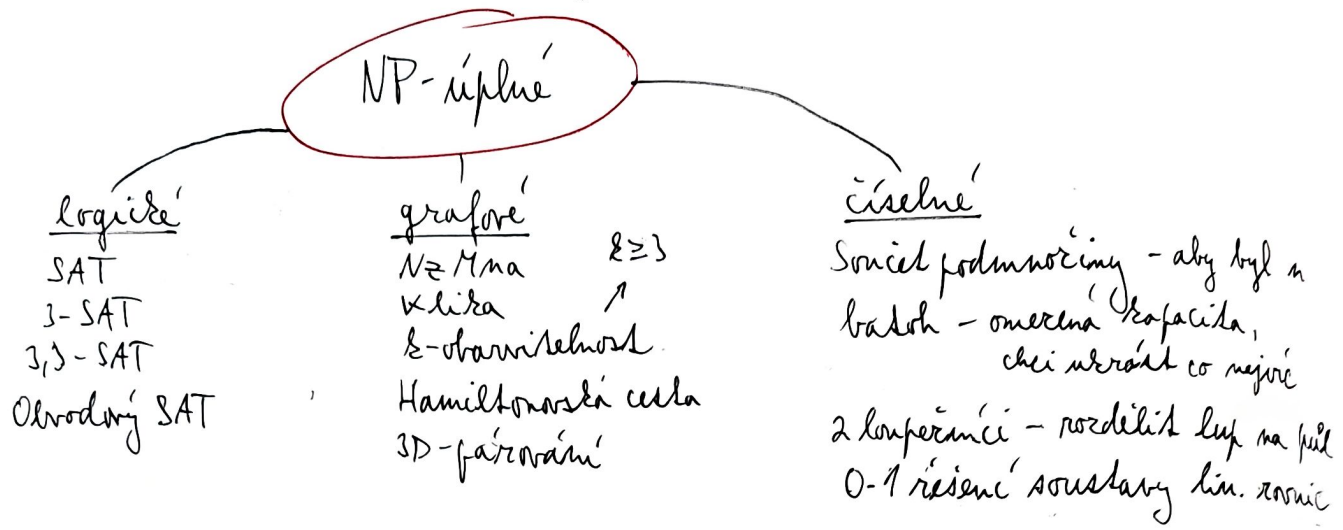 NP-úplné
logické
SAT
3-SAT
3,3-SAT
Obvodový SAT
grafové
NzMna
Klika
k-obarvitelnost
k≥3
Hamiltonovská cesta
3D-párování
číselné
Součet podmnožiny - aby byl n
batoh - omezená kapacita,
chci ukrást co nejvíc
2 loupežníci - rozdělit lup na půl
0-1 řešení soustavy lin. rovnic